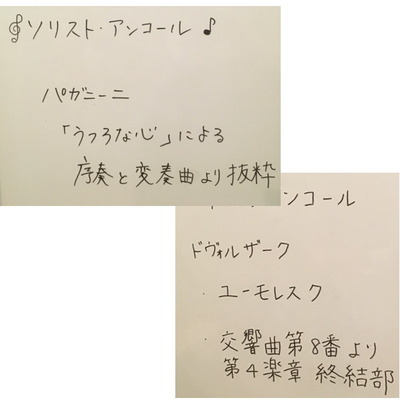 ソリスト・アンコール
パガニーニ
「うつろな心」による
序奏と変奏曲より抜粋
アンコール
ドヴォルザーク
・ユーモレスク
・交響曲第8番より
第4楽章 終結部